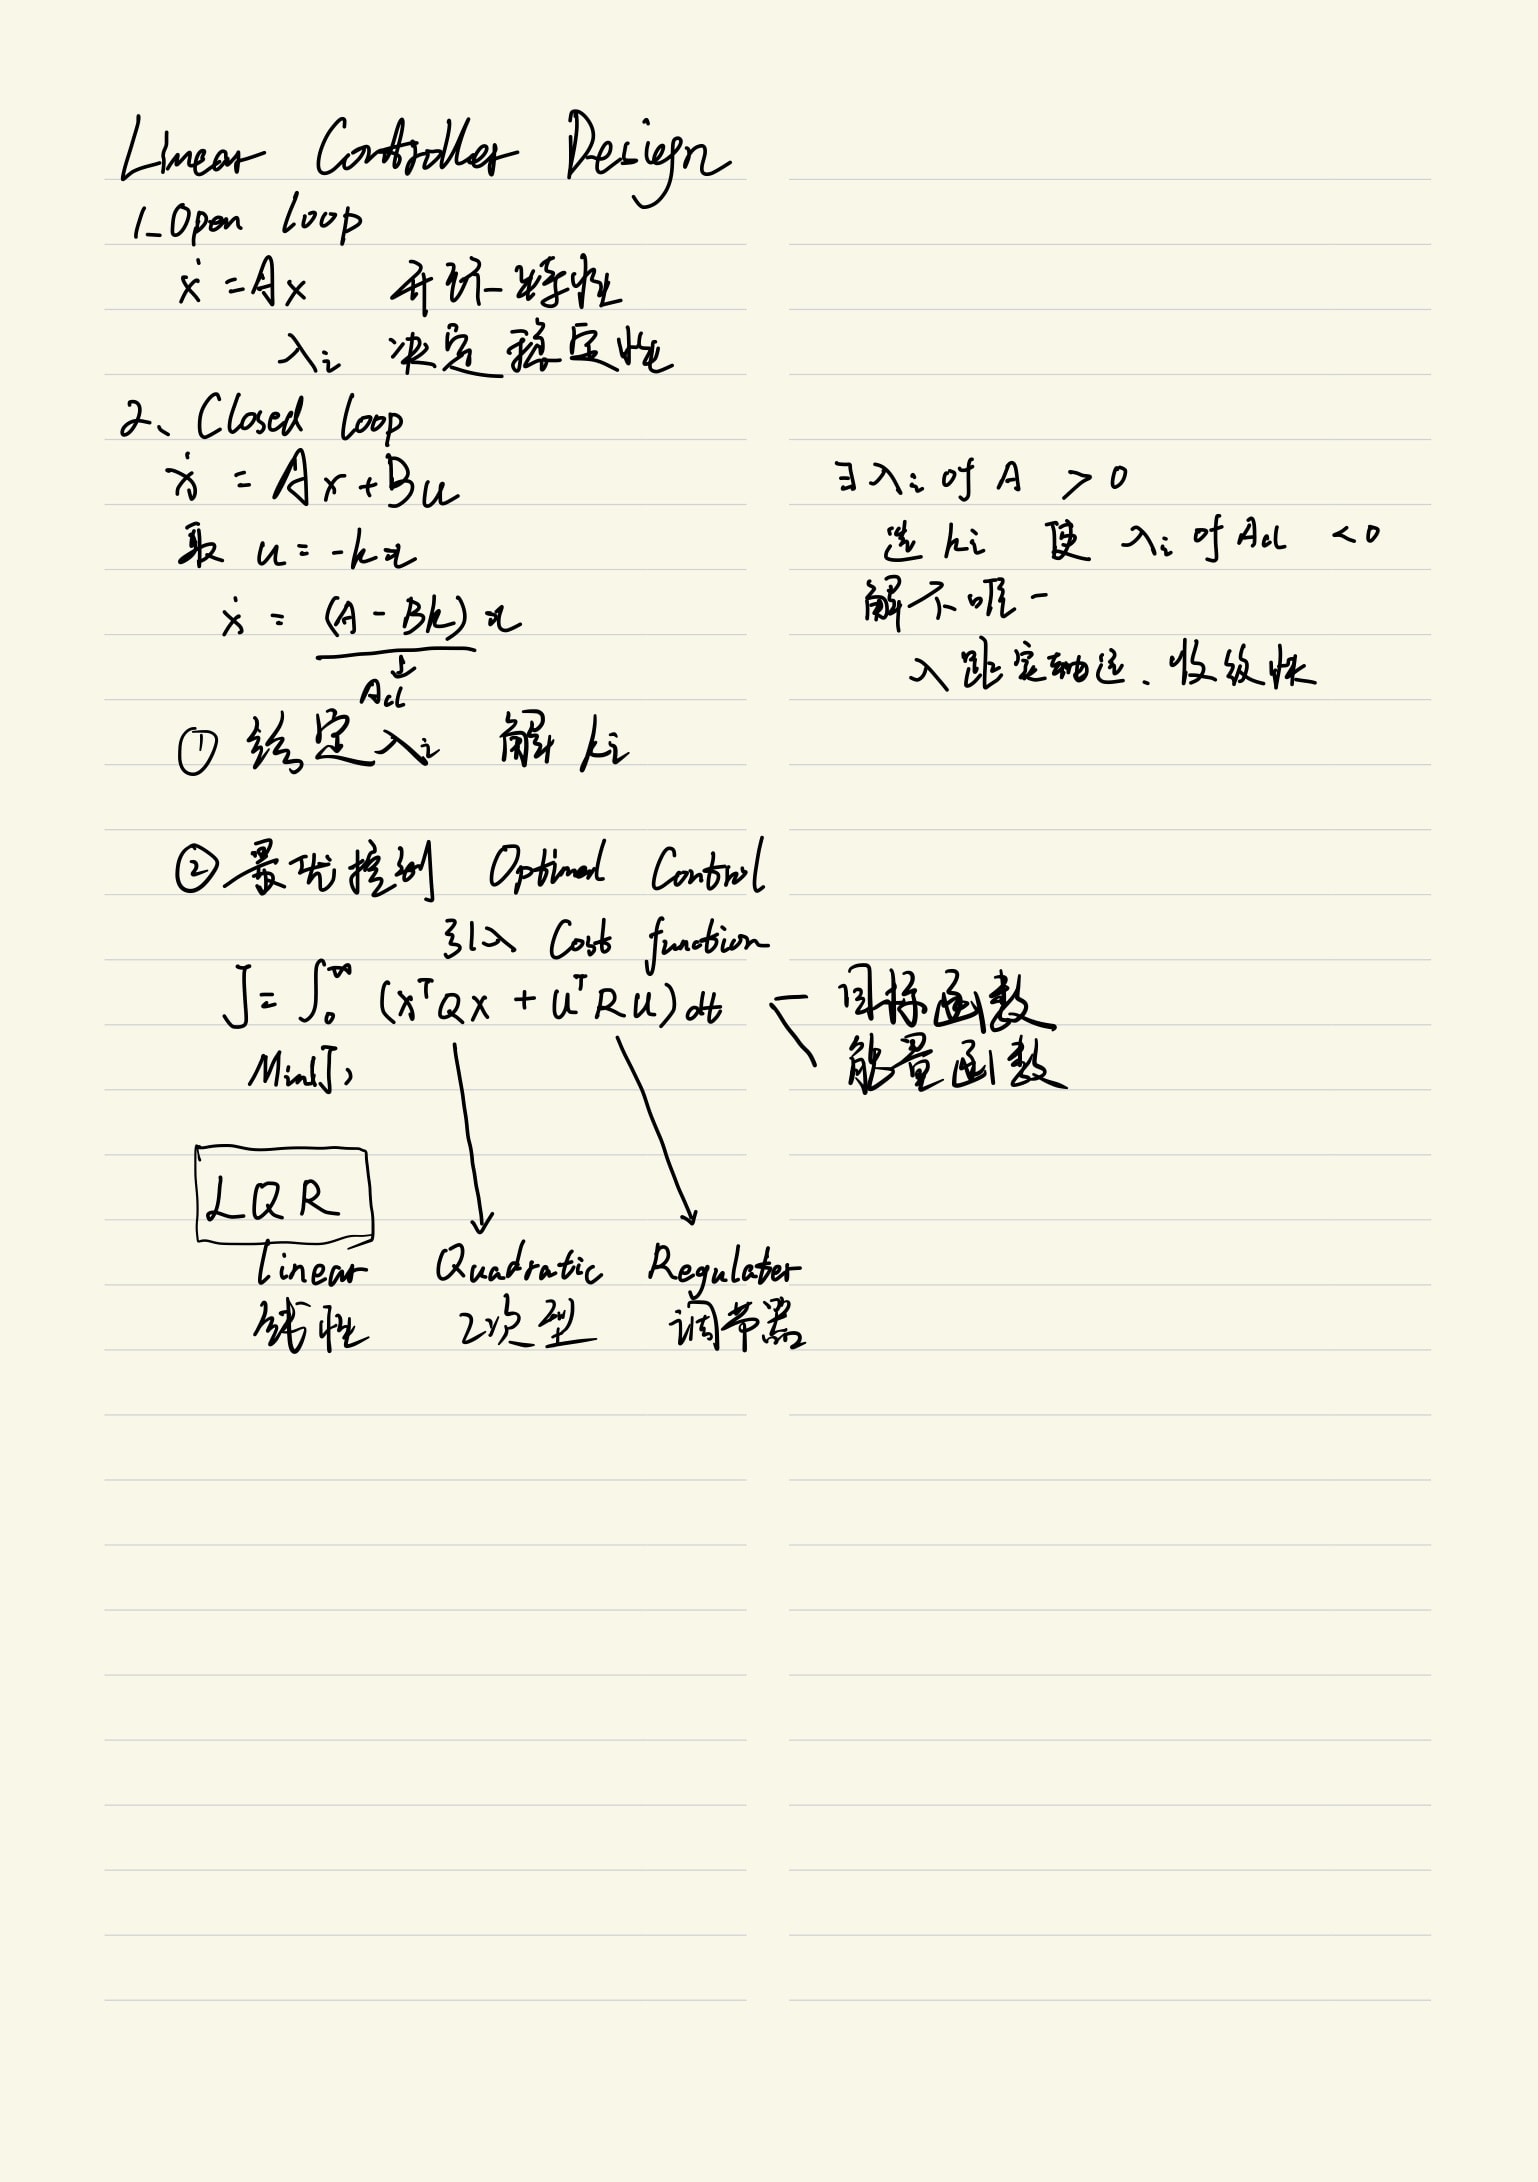 Linear Controller Design
1. Open loop
ẋ = Ax 开环特性
λi 决定稳定性
2、Closed loop
ẋ = Ax + Bu
取 u = -kx
ẋ = (A - Bk) x
Acl
① 给定λi 解 ki
② 最优控制 Optimal Control
引入 Cost function
J = ∫₀^∞ (xᵀQx + uᵀRu) dt
Min(J)
LQR
Linear Quadratic Regulater
线性 2次型 调节器
∃ λi of A > 0
选 ki 使 λi of Acl < 0
解不唯一
λ 距实轴远、收敛快
目标函数
能量函数